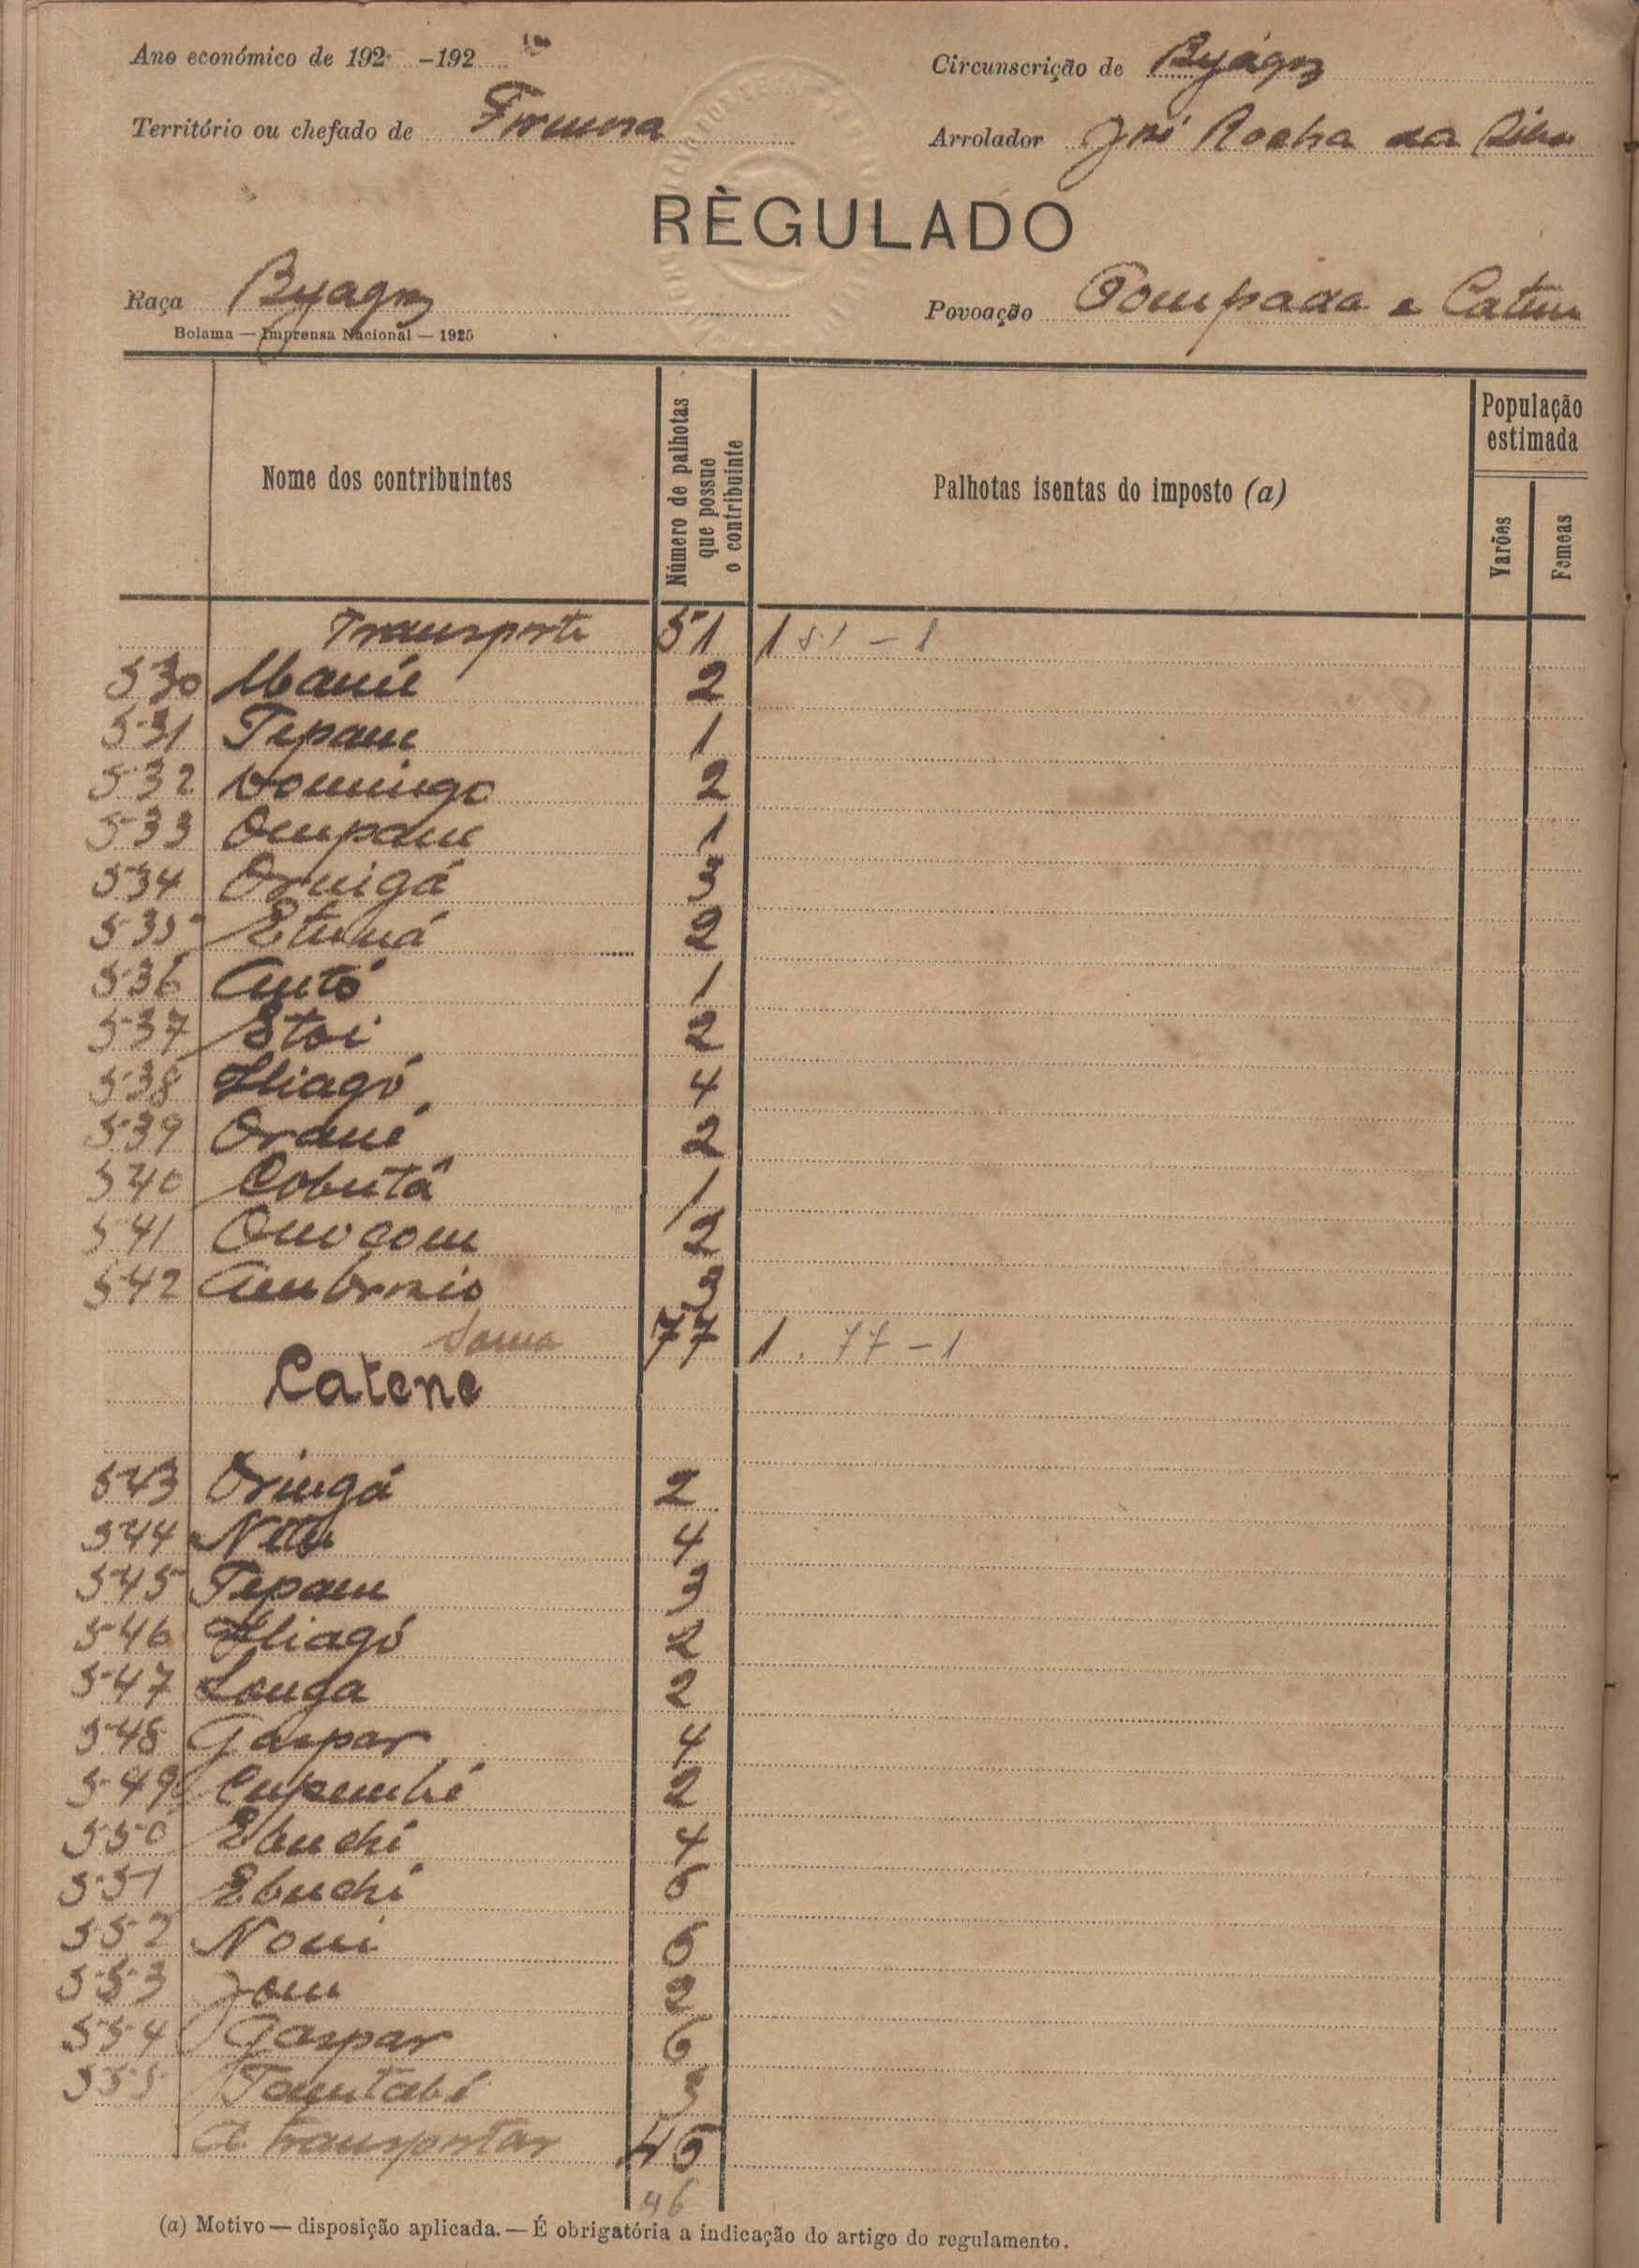 Ano económico de 192 -192
Circunscrição de Byágoz
Território ou chefado de Formosa
Arrolador José Rocha da Silva
RÈGULADO
Raça Byagoz
Povoação Pompada e Catene
Bolama — Imprensa Nacional — 1925
Nome dos contribuintes
Número de palhotas que possue o contribuinte
Palhotas isentas do imposto (a)
População estimada
Varões
Femeas
Transporte 51 1 51 - 1
530 Manié 2
531 Tepam 1
532 Domingo 2
533 Ompam 1
534 Oruigá 3
535 Etuná 2
536 Antó 1
537 Etoi 2
538 Iliagó 4
539 Orané 2
540 Cobutá 1
541 Onocom 2
542 Ambrozio 3
Soma 77 1 . 77 - 1
Catene
543 Oringá 2
544 Neto 4
545 Tepam 3
546 Iliagó 2
547 Longa 2
548 Gaspar 4
549 Cupumbé 2
550 Ebuchi 4
551 Ebuchi 5
552 Noni 5
553 Jom 2
554 Gaspar 6
555 Tamtabé 3
A transportar 45
46
(a) Motivo — disposição aplicada. — É obrigatória a indicação do artigo do regulamento.